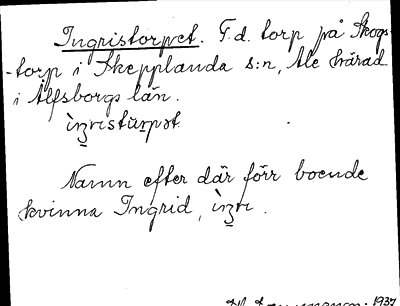 Ingristorpet. F.d. torp på Skogs-
-torp i Skepplanda s:n, Ale härad
i Älfsborgs län.
ìŋristùrpət.
Namn efter där förr boende
kvinna Ingrid, ìŋri.
1937